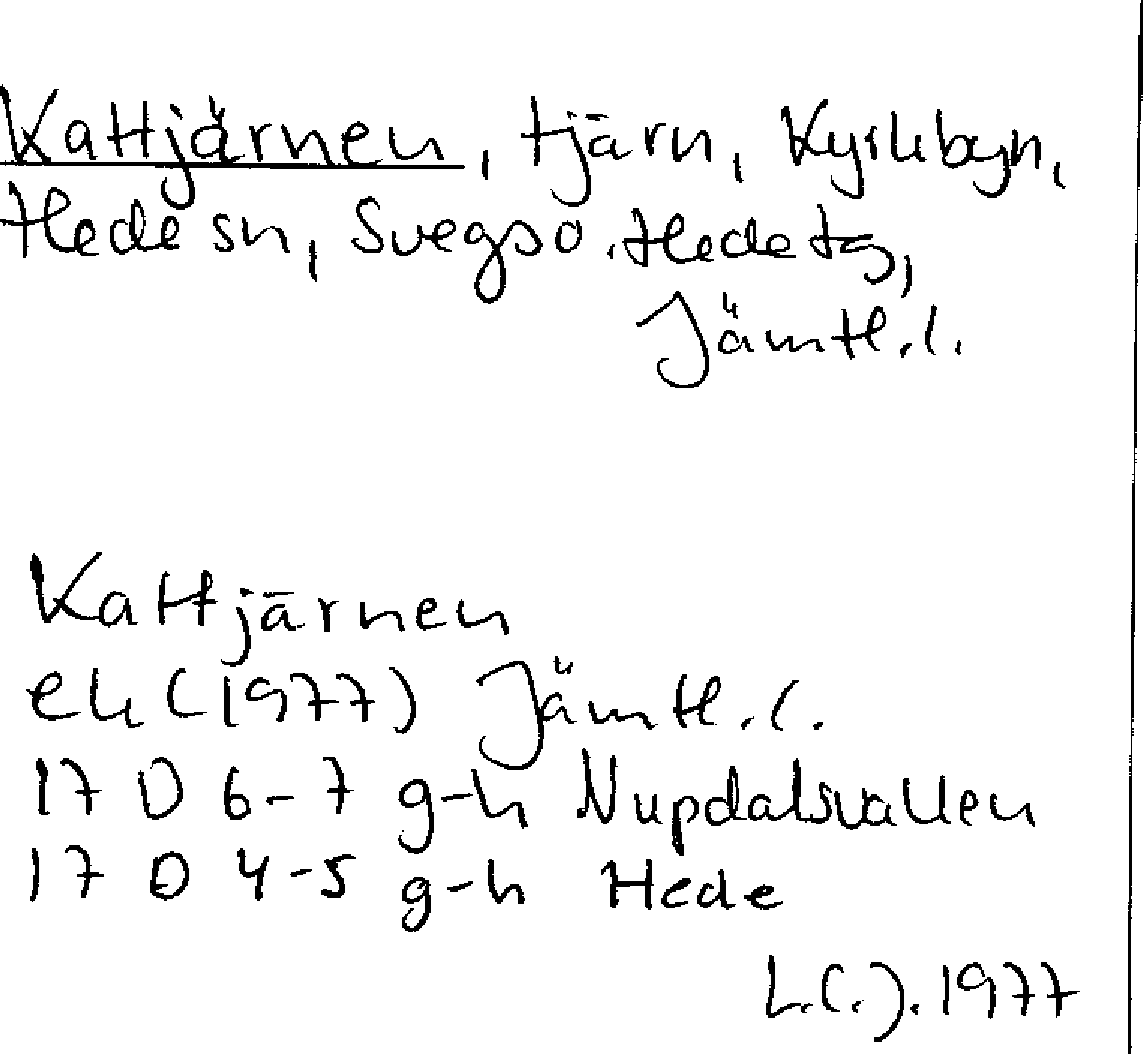 Kattjärnen, tjärn, Kyrkbyn,
Hede sn, Svegs o. Hede tg,
Jämtl.l.
Kattjärnen
ek (1977) Jämtl.l.
17 D 6-7 g-h Nupdalsvallen
17 D 4-5 g-h Hede
1977